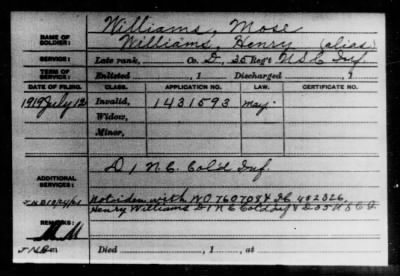 Williams, Mose
NAME OF
SOLDIER:
Williams, Henry (alias)
SERVICE: Late rank, Co. D, 35 Reg't U.S.C. Inf.
TERM OF
SERVICE: Enlisted , 1 Discharged , 1
DATE OF FILING. CLASS. APPLICATION NO. LAW. CERTIFICATE NO.
1919 July 12 Invalid, 1431593 May.
Widow,
Minor,
ADDITIONAL
SERVICES:
D 1 N.C. Cold Inf.
Not iden with WO 760708 &
Henry Williams D 1 N C Cold Inf & D 35 U S C I
REMARKS:
Died , 1 , at